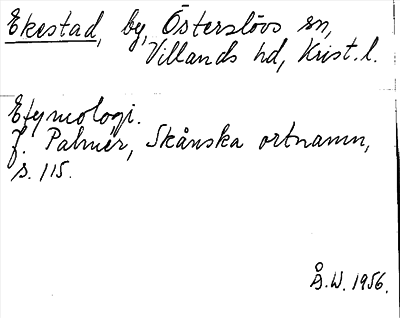 Ekestad, by, Österslövs sn,
Villands hd, Krist. l.
Etymologi.
f. Palmér, Skånska ortnamn,
s. 115.
Å.W. 1956.